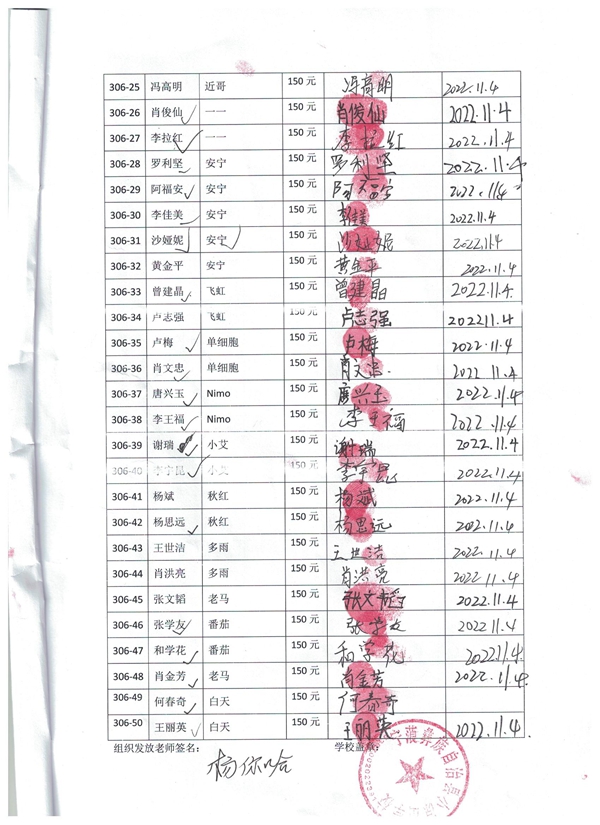 306-25 冯高明 近哥 150 元 冯高明 2022.11.4
306-26 肖俊仙 一一 150 元 肖俊仙 2022.11.4
306-27 李拉红 一一 150 元 李拉红 2022.11.4
306-28 罗利坚 安宁 150 元 罗利坚 2022.11.4
306-29 阿福安 安宁 150 元 2022.11.4
306-30 李佳美 安宁 150 元 李佳美 2022.11.4
306-31 沙娅妮 安宁 150 元 沙娅妮 2022.11.4
306-32 黄金平 安宁 150 元 黄金平 2022.11.4
306-33 曾建晶 飞虹 150 元 曾建晶 2022.11.4
306-34 卢志强 飞虹 150 元 卢志强 202211.4
306-35 卢梅 单细胞 150 元 卢梅 2022.11.4
306-36 肖文忠 单细胞 150 元 肖文忠 2022.11.4
306-37 唐兴玉 Nimo 150 元 唐兴玉 2022.11.4
306-38 李王福 Nimo 150 元 李王福 2022.11.4
306-39 谢瑞 小艾 150 元 谢瑞 2022.11.4
306-40 李宇昆 小艾 150 元 李宇昆 2022.11.4
306-41 杨斌 秋红 150 元 杨斌 2022.11.4
306-42 杨思远 秋红 150 元 杨思远 2022.11.4
306-43 王世洁 多雨 150 元 王世洁 2022.11.4
306-44 肖洪亮 多雨 150 元 肖洪亮 2022.11.4
306-45 张文韬 老马 150 元 张文韬 2022.11.4
306-46 张学友 番茄 150 元 张学友 2022.11.4
306-47 和学花 番茄 150 元 和学花 2022.11.4
306-48 肖金芳 老马 150 元 肖金芳 2022.11.4
306-49 何春奇 白天 150 元 何春奇
306-50 王丽英 白天 150 元 王丽英 2022.11.4
组织发放老师签名： 学校盖章：
杨你哈
宁蒗彝族自治县